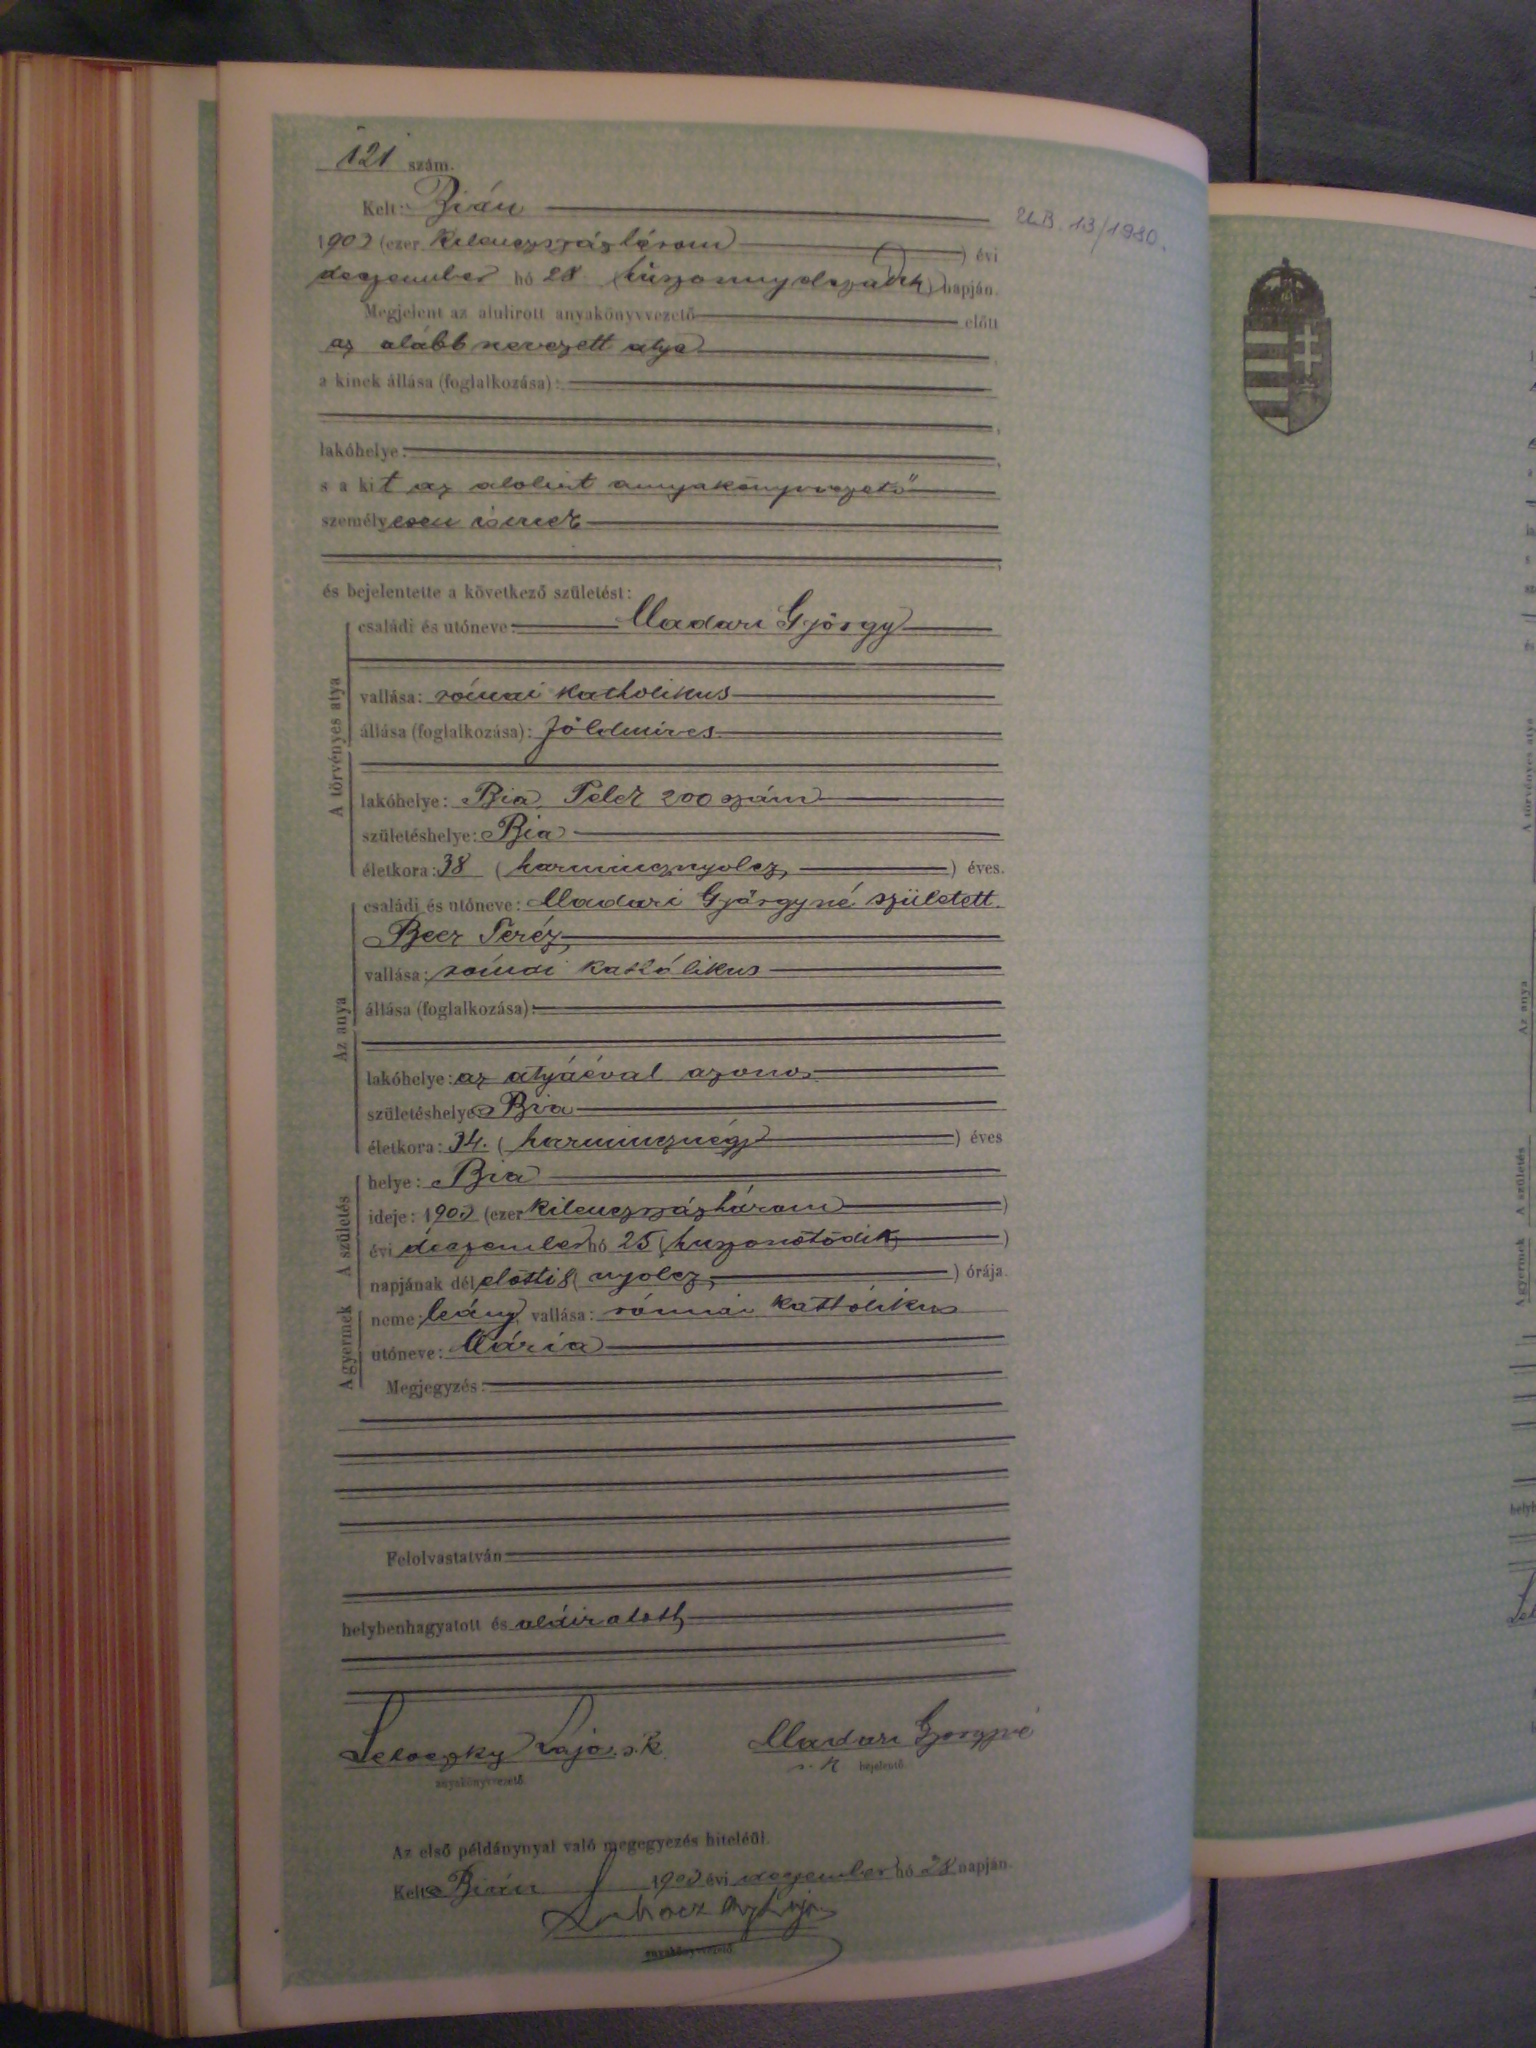 121 szám.
Kelt: Bián
1903 (ezer kilenczszázhárom) évi
deczember hó 28 (huszonnyolczadik) napján.
Megjelent az alulirott anyakönyvvezető előtt
az alább nevezett atya
a kinek állása (foglalkozása):
lakóhelye:
s a kit az alolirt annyakönyvvezető
személyesen ismer
és bejelentette a következő születést:
A törvényes atya
családi és utóneve: Madari György
vallása: római katholikus
állása (foglalkozása): földmives
lakóhelye: Bia 200 szám
születéshelye: Bia
életkora: 38 (harmincznyolcz) éves.
Az anya
családi és utóneve: Madari Györgyné született
Beer Teréz
vallása: római katólikus
állása (foglalkozása):
lakóhelye: az atyáéval azonos
születéshelye: Bia
életkora: 34. (harmincznégy) éves
A születés
helye: Bia
ideje: 1903 (ezer kilenczszázhárom)
évi deczember hó 25 (huszonötödik)
napjának délelőtti 8 (nyolcz) órája.
A gyermek
neme: leány, vallása: római kattólikus
utóneve: Mária
Megjegyzés:
Felolvastatván
helybenhagyatott és aláiratott
Lajos s.k. Madari Györgyné
anyakönyvvezető. s. k bejelentő.
Az első példánynyal való megegyezés hiteléül.
Kelt Bián 1903 évi deczember hó 28 napján.
anyakönyvvezető.
13/1980.
A törvényes atya
Az anya
A születés
A gyermek